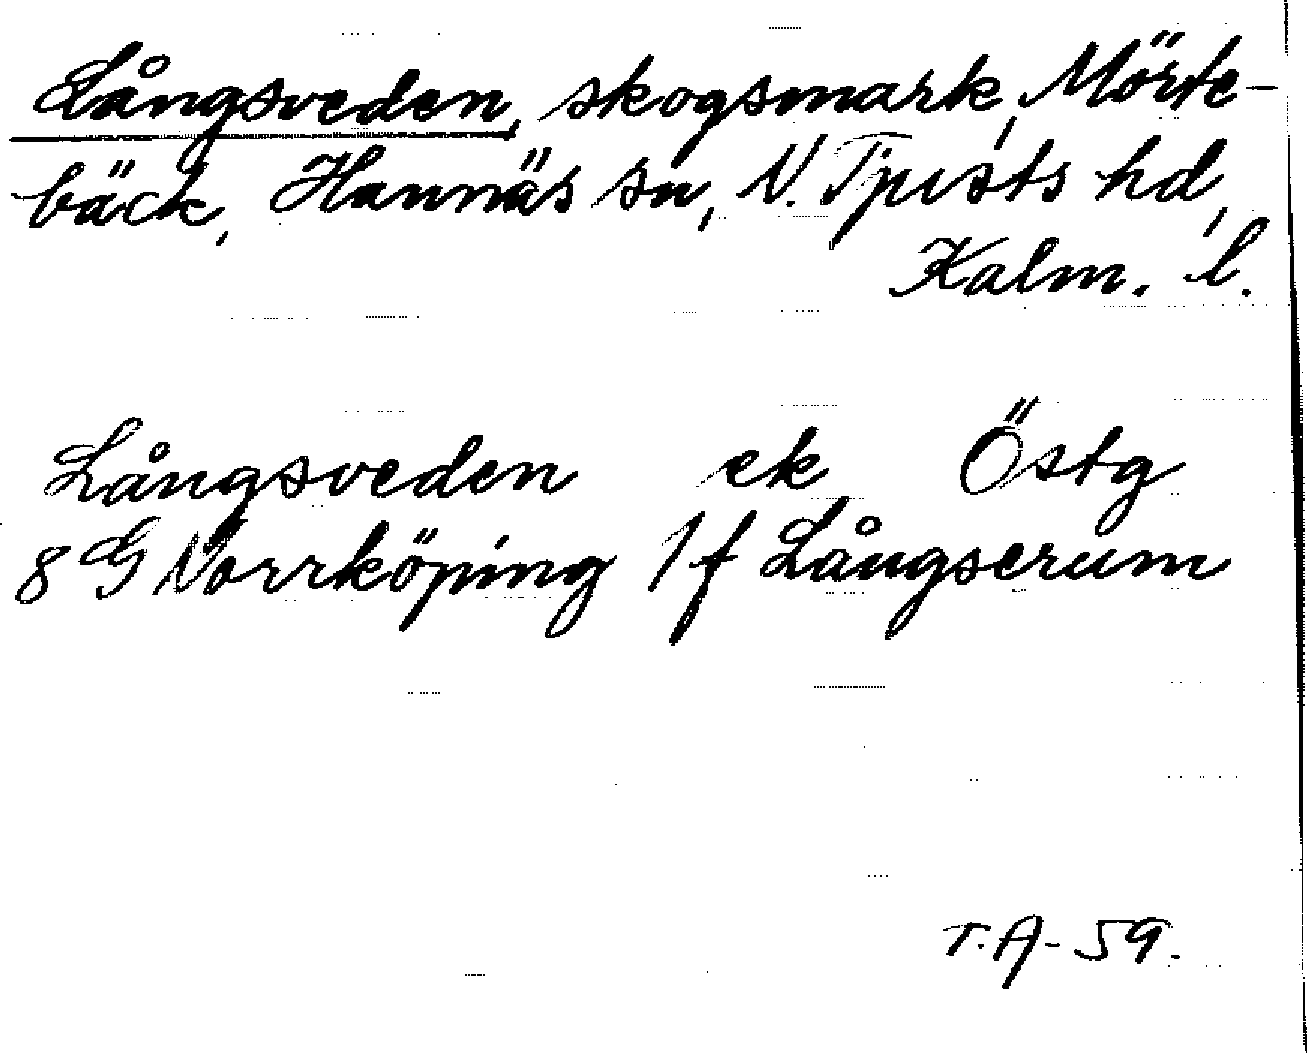 Långsveden, skogsmark, Mörte-
bäck, Hannäs sn, N. Tjusts hd,
Kalm. l.
Långsveden ek Östg
8 G Norrköping 1 f Långserum
T.A-59.